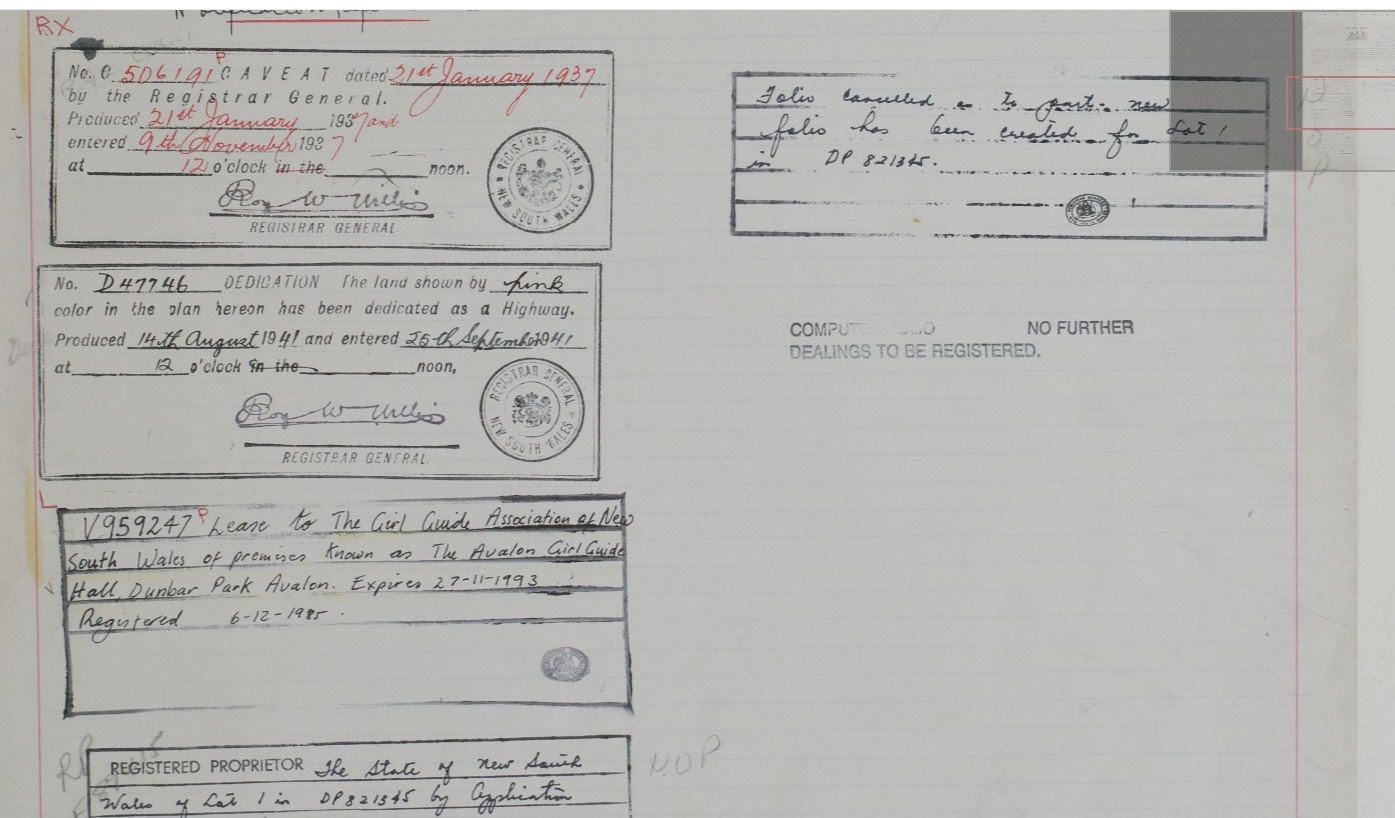 RX
No. C 506191 P CAVEAT dated 21st January 1937
by the Registrar General.
Produced 21st January 1937 and
entered 9th November 1937
at 12 o'clock in the noon.
Roy W Willis
REGISTRAR GENERAL.
REGISTRAR GENERAL
NEW SOUTH WALES
No. D47746 DEDICATION The land shown by pink
color in the plan hereon has been dedicated as a Highway.
Produced 14th August 1941 and entered 25th September 1941
at 12 o'clock in the noon,
Roy W Willis
REGISTRAR GENERAL.
REGISTRAR GENERAL
NEW SOUTH WALES
V959247 P Lease to The Girl Guide Association of New
South Wales of premises known as The Avalon Girl Guide
Hall, Dunbar Park Avalon. Expires 27-11-1993
Registered 6-12-1985.
REGISTERED PROPRIETOR The State of New South
Wales of Lot 1 in DP 821345 by Application
Folio cancelled as to part - new
folio has been created for Lot 1
in DP 821345.
NO FURTHER
DEALINGS TO BE REGISTERED.
NOP